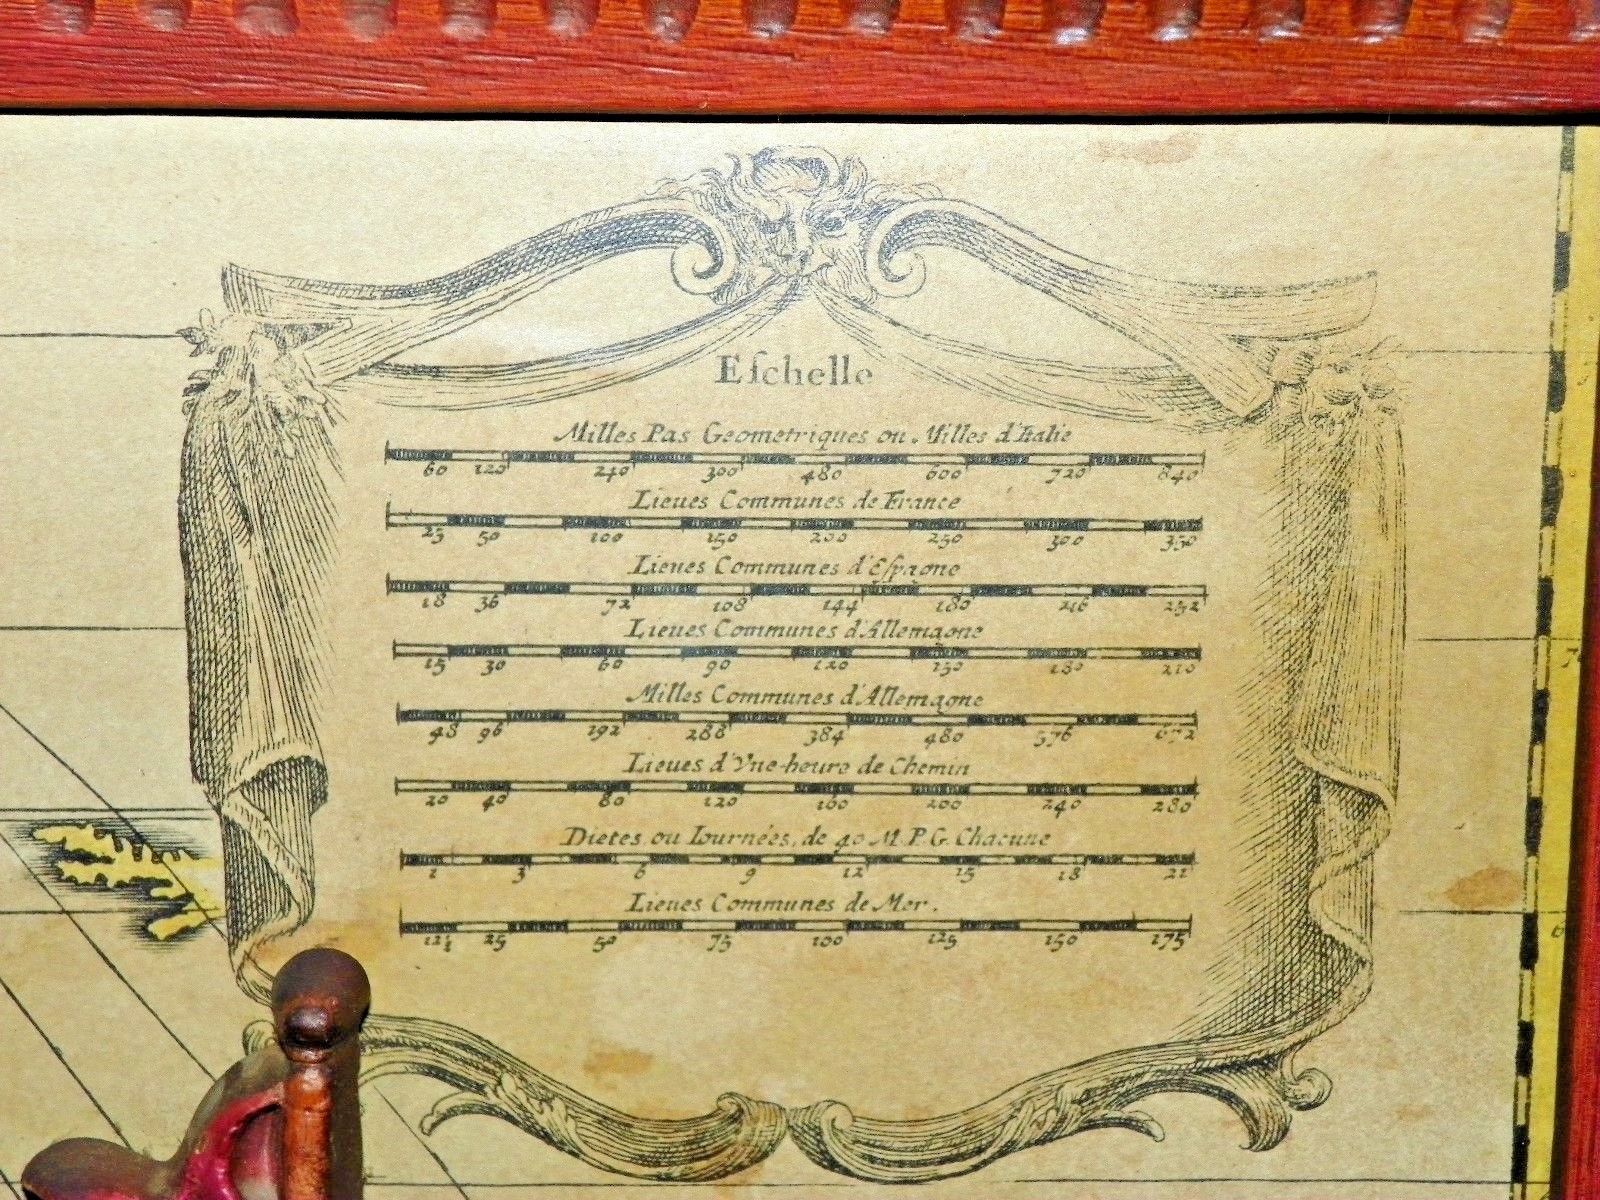 Eſchelle
Milles Pas Geometriques ou Milles d'Italie
60 120 240 300 480 600 720 840
Lieues Communes de France
25 50 100 150 200 250 300 350
Lieues Communes d'Eſpagne
18 36 72 108 144 180 216 252
Lieues Communes d'Allemagne
15 30 60 90 120 150 180 210
Milles Communes d'Allemagne
48 96 192 288 384 480 576 672
Lieues d'Vne heure de Chemin
20 40 80 120 160 200 240 280
Dietes ou Iournées, de 40 M. P. G. Chacune
1 3 6 9 12 15 18 21
Lieues Communes de Mer.
12½ 25 50 75 100 125 150 175
7
6